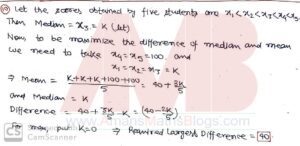 10 Let the scores obtained by five students are x₁<x₂<x₃<x₄<x₅.
Then Median = x₃ = K (let)
Now to be maximize the difference of median and mean
We need to take x₄ = x₅ = 100, and
x₁ = x₂ = x₃ = K
⇒ Mean = (K+K+K+100+100)/5 = 40 + 3K/5
and Median = K
Difference = 40 + 3K/5 - K = (40 - 2K/5)
For max put K=0 ⇒ Required Largest Difference = 40
AMB
AmansMathsBlogs.com
CamScanner